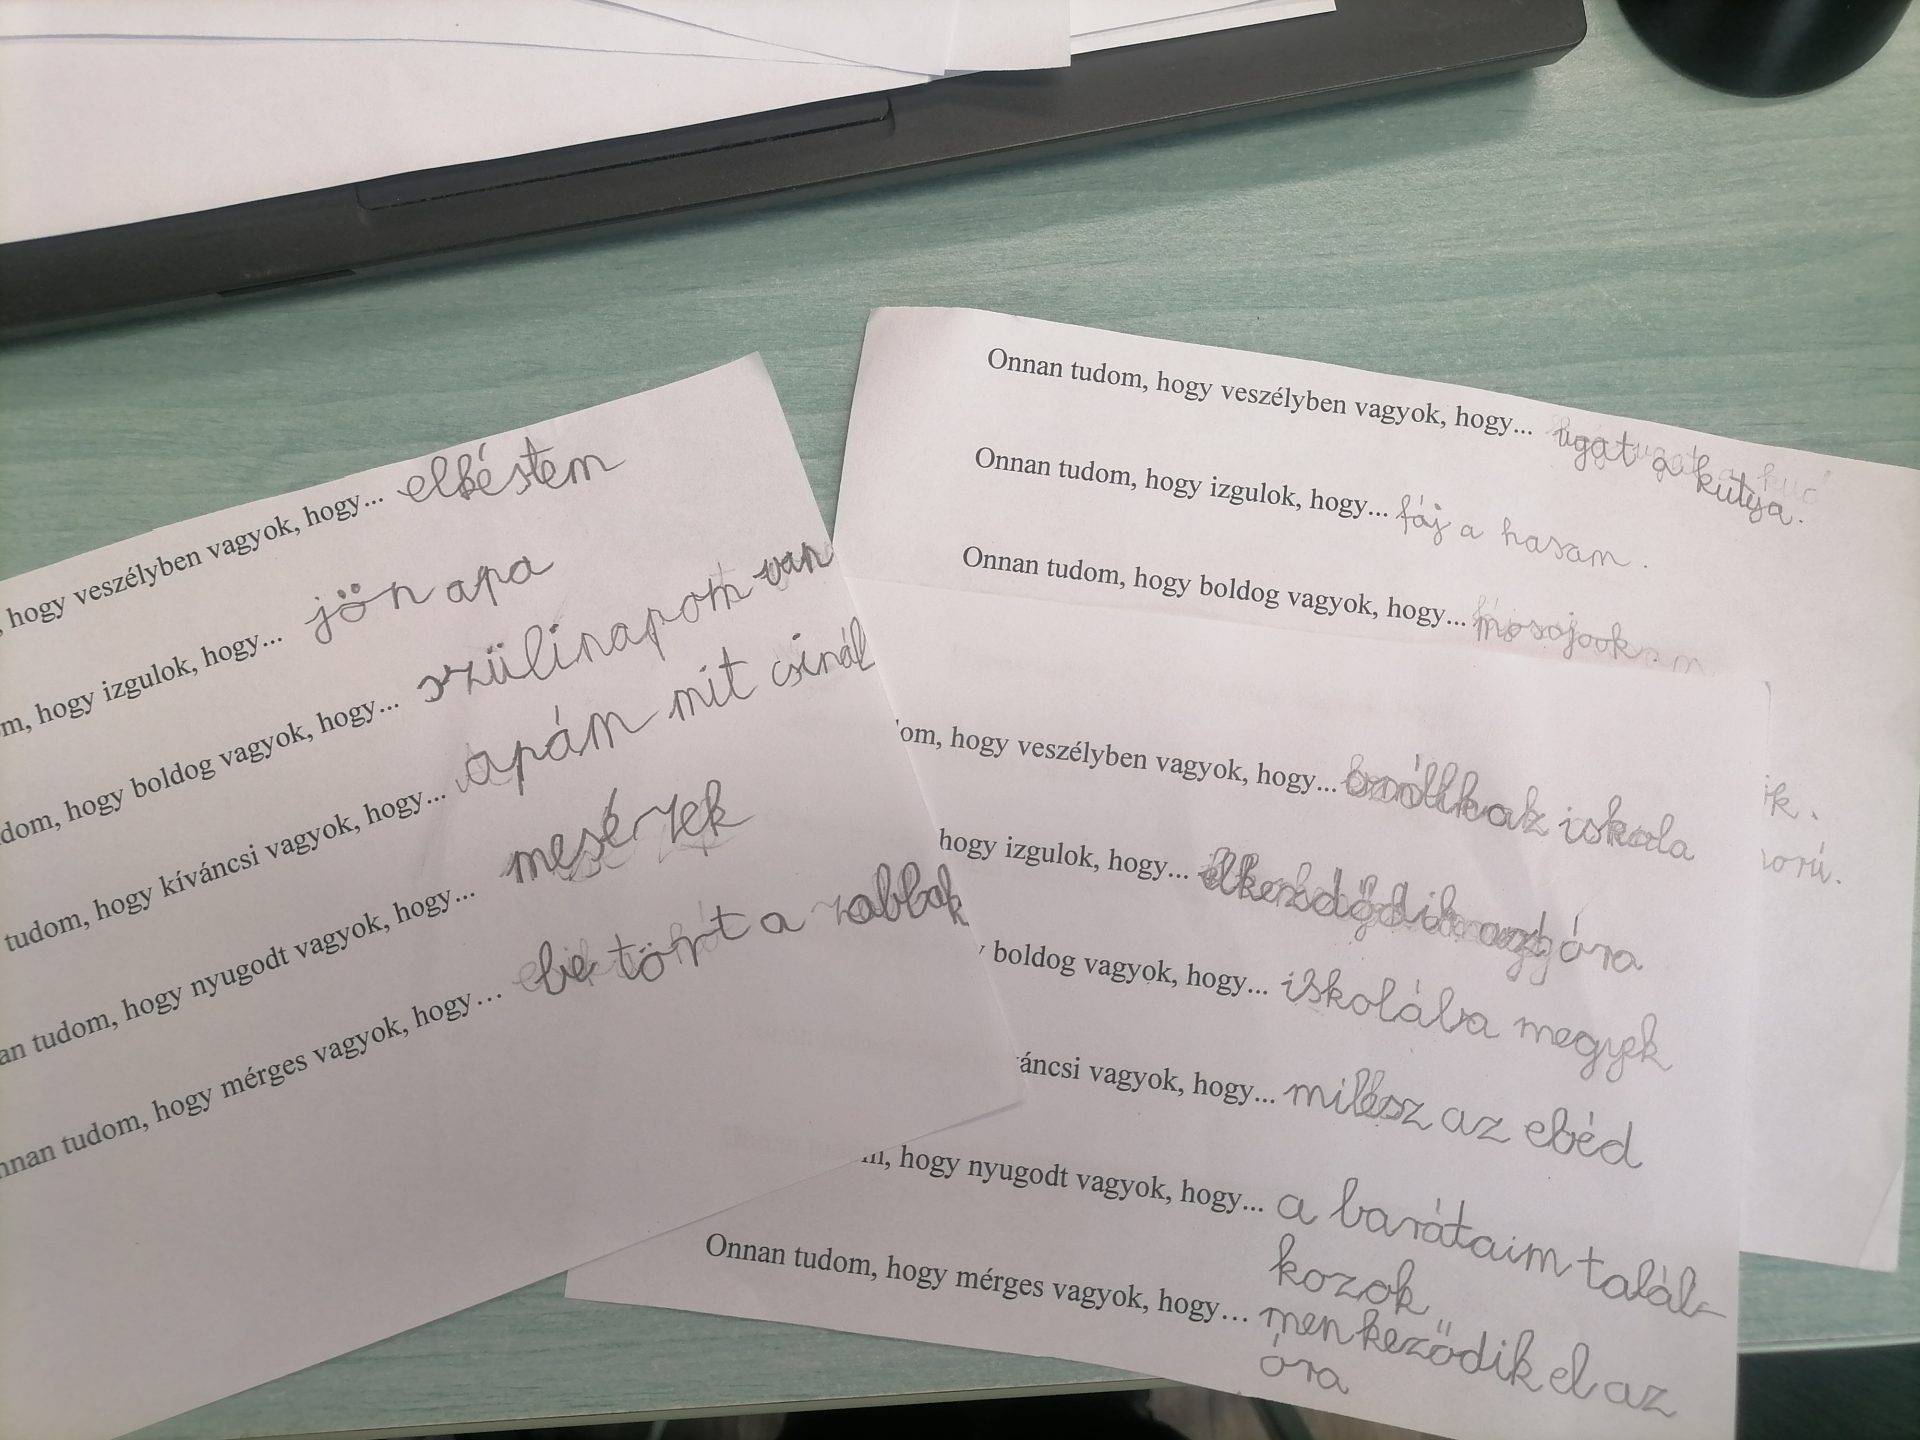 , hogy veszélyben vagyok, hogy... elkéstem
m, hogy izgulok, hogy... jön apa
dom, hogy boldog vagyok, hogy... szülinapom van
tudom, hogy kíváncsi vagyok, hogy... apám mit csinál
an tudom, hogy nyugodt vagyok, hogy...
nnan tudom, hogy mérges vagyok, hogy... be tört a
Onnan tudom, hogy veszélyben vagyok, hogy... ugat a kutya.
Onnan tudom, hogy izgulok, hogy... fáj a hasam.
Onnan tudom, hogy boldog vagyok, hogy...
ik.
orú.
dom, hogy veszélyben vagyok, hogy... az iskola
hogy izgulok, hogy... elkezdődik az óra
y boldog vagyok, hogy... iskolába megyek
váncsi vagyok, hogy... milesz az ebéd
m, hogy nyugodt vagyok, hogy... a barátaim talál-
kozok
Onnan tudom, hogy mérges vagyok, hogy... men keződik el az
óra